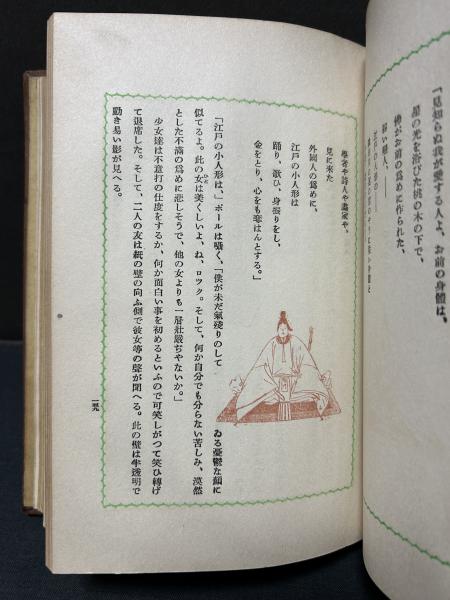 「見知らぬ我が愛する人よ、お前の身體は、
星の光を浴びた桃の木の下で、
神がお前の爲めに作られた、
若い婦人、――
江戸の小人形の
學者や詩人や畫家や、
見に來た
外國人の爲めに、
江戸の小人形は
踊り、歌ひ、身振りをし、
金をとり、心をも奪はんとする。」
「江戸の小人形は、」ポールは囁く、「僕が未だ氣殘りのして
ゐる憂鬱な顏に
似てるよ。此の女は美くしいよ、ね、ロツク。そして、何か自分でも分らない苦しみ、漠然
とした不滿の爲めに悲しそうで、他の女よりも一層壯嚴ぢやないか。」
少女達は不意打の仕度をするか、何か面白い事を初めるといふので可笑しがつて笑ひ轉げ
て退席した。そして、二人の友は紙の壁の向ふ側で彼女等の聲が聞へる。此の壁は半透明で
動き易い影が見へる。
一二九